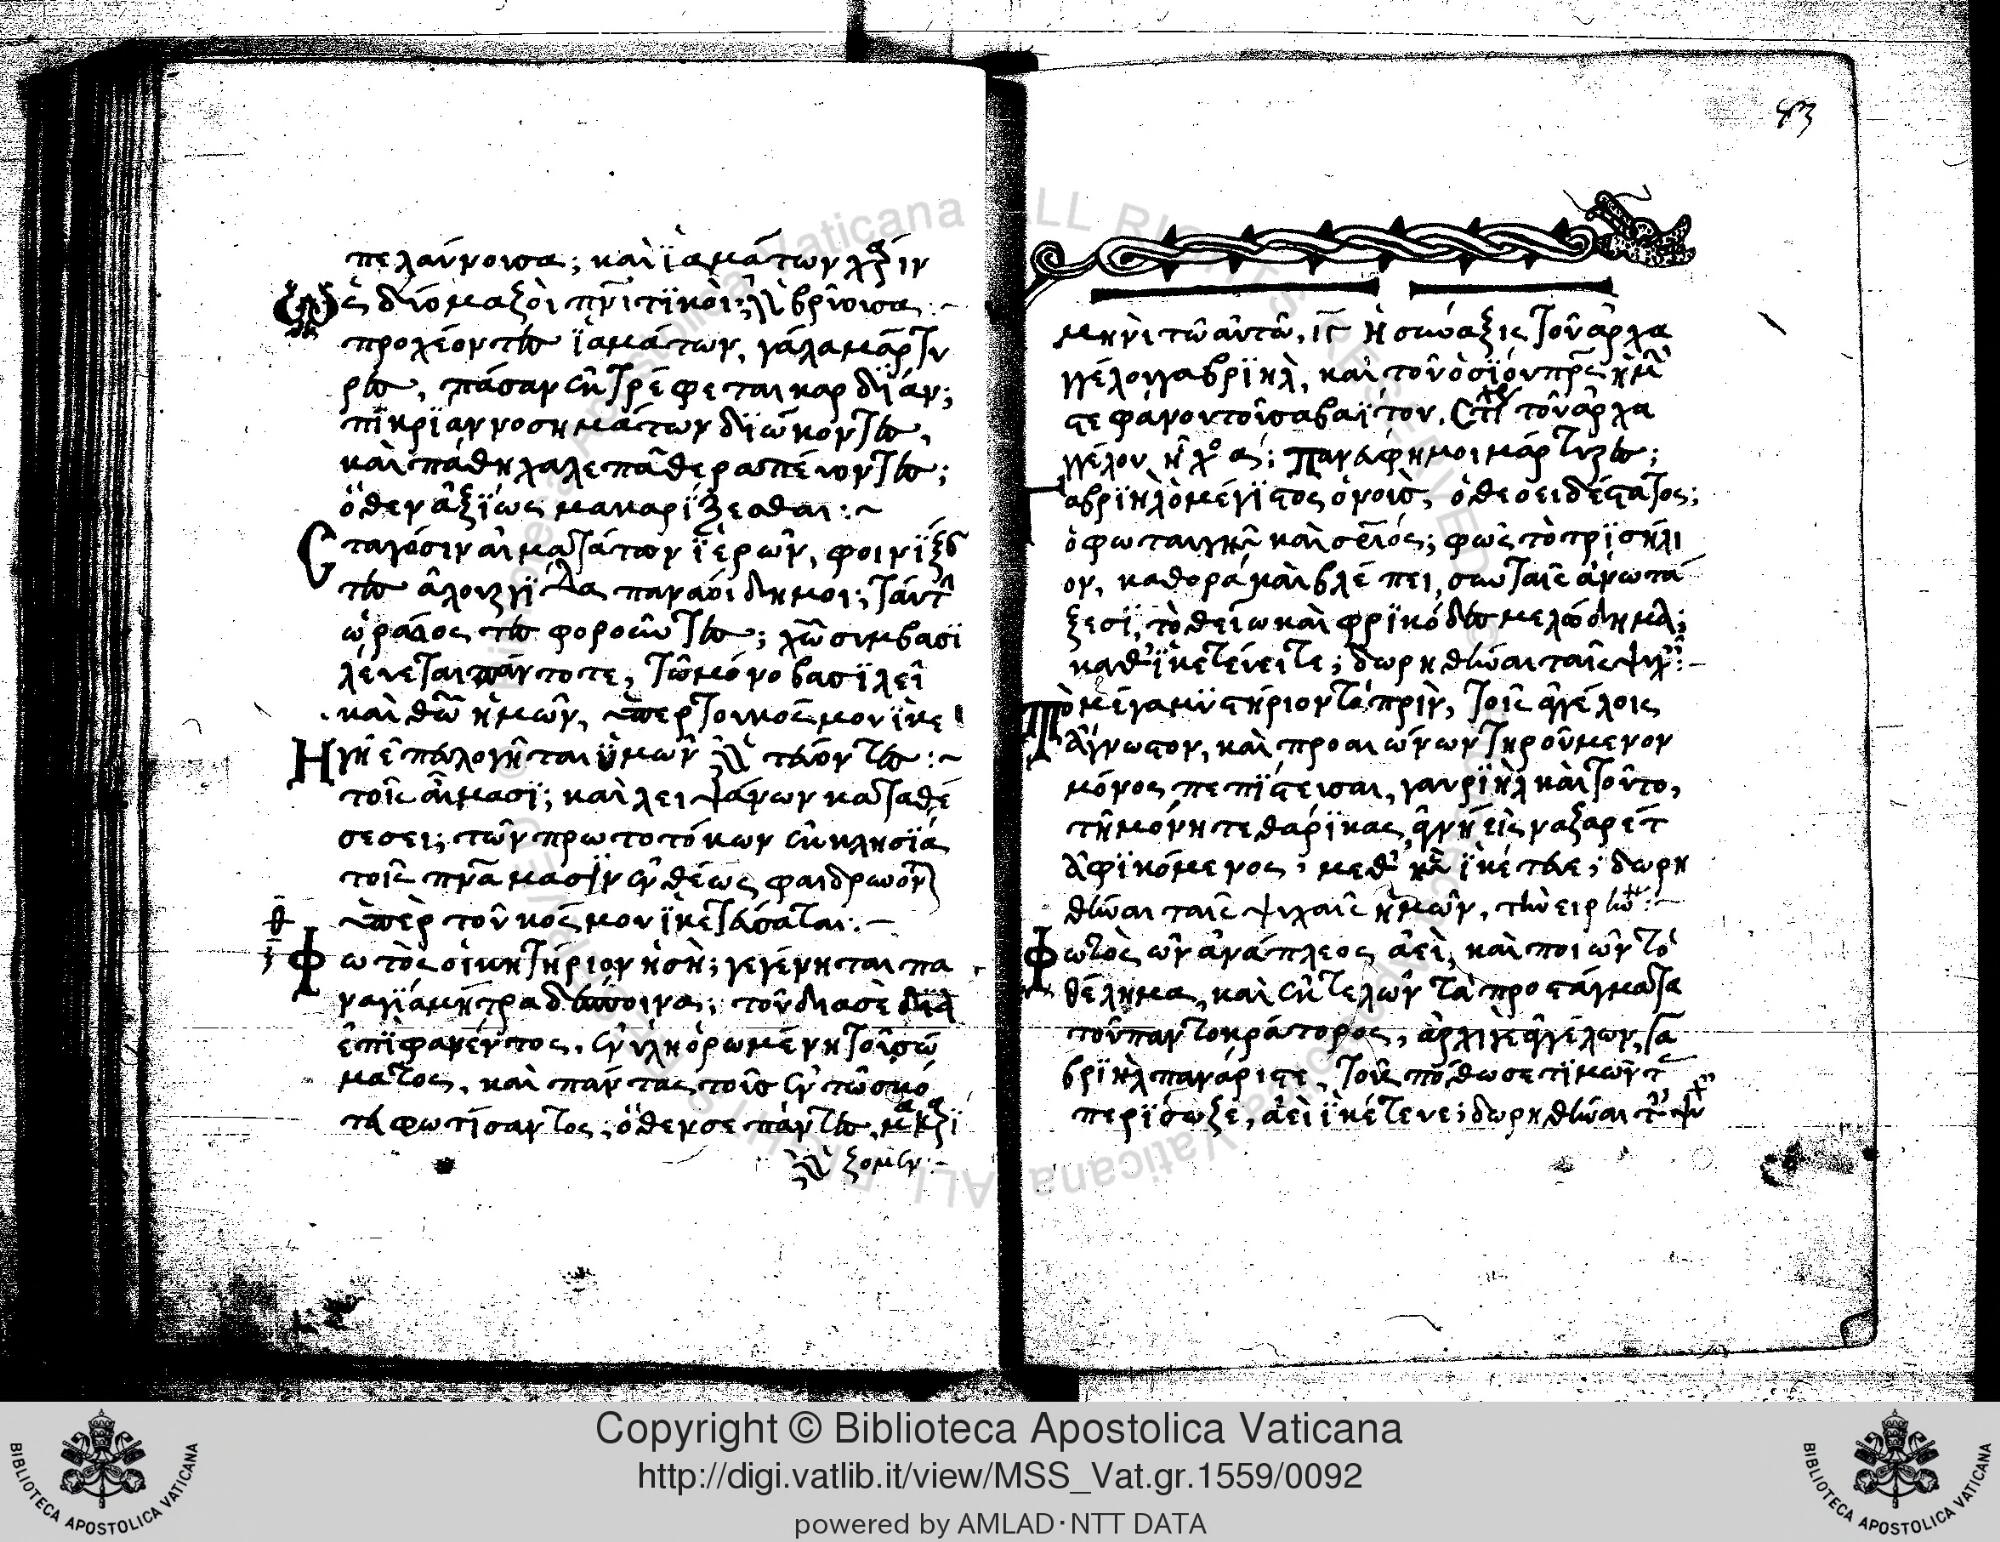 πελάγουσα; καὶ ϊαμάτων χάριν
Ὡς δύο μαζοὶ πνϊτϊκοὶ; ἐκβρύουσα :~
προχέοντες ϊαμάτων, γάλα μάρτυ
ρες, πάσαν ἐκτρέφεται καρδΐαν;
πϊκρΐαν νοσημάτων δϊώκοντες,
καὶ πάθη χαλεπὰ θεραπέυοντες;
ὅθεν ἀξΐως μακαρίζεσθαι :~
Σταγόσιν αἱμάτων ϊερῶν, φοινϊξαν
τες ἁλουργΐδα παναοίδημοι; ταύτην
ὡράιος τε φοροῦντες; χῶ συμβασϊ
λέυεται πάντοτε, τῶ μόνο βασϊλεῖ
καὶ θῶ ἡμῶν, ὑπερ τοῦ κόσμου ϊκε
Ἡ γῆ ἐπευλογῆται ὑμῶν
τοῖς αἵμασϊ; καὶ λειψάνων καταθέ
σεσει; τῶν πρωτοτόκων ἐκκλησΐα
τοῖς πνάμασϊν ἐνθέως φαιδρωοῦν
ὑπὲρ τοῦ κόσμου ϊκετεύσαται:~
θ
Φωτὸς οἰκητήριον ἡ σὴ; γεγένηται πα
ναγΐα μήτρα δέσποινα; τοῦ διασὲ
ἐπϊφανέντος, ἐν ὑλη ὁρωμένη τοῦ σώ
ματος, καὶ πάντας τοῦς ἐν τῶ σκό
τη φωτίσαντος, ὅθεν σε πάντες,
ζομεν :~
83
μηνὶ τῶ αὐτῶ, ἡ σύναξις τοῦ ἀρχα
γγέλου γαβρϊηλ, καὶ τοῦ ὁσΐου πρς ἡμ
στεφάνου τοῦ σαβαΐτου, στχ τοῦ ἀρχα
γγέλου, ἦχο α; πανεύφημοι μάρτυρες;
Γαβρϊὴλ ὁ μέγϊστος ὁ νοῦς, ὁ θεοειδέστατος;
ὁ φωταυγὴς καὶ σεπτός; φῶς τὸ τρϊσήλι
ον, καθορᾶ καὶ βλέπει, συν ταῖς ἄνω τά
ξεσϊ, τὸ θείω καὶ φρϊκόδες μελώδημα;
καθϊκετέυειτε; δωρηθῆναι ταῖς ψυχ:~
Τὸ μέγα μϋστήριον τὸ πρὶν, τοῖς ἀγγέλοις
ἄγνωστον, καὶ προαιώνων τηρούμενον
μόνος πεπΐστευσαι, γαυρϊὴλ καὶ τοῦτο,
τῆ μόνη τεθαρϊκας ἁγνῆ εἰς ναζαρέτ
ἀφϊκόμενος; μεθ ϊκέτευε; δωρη
θῆναι ταῖς ψυχαῖς ἡμῶν, τὴν εἰρήνην:~
Φωτὸς ὢν ἀνάπλεος ἀεὶ, καὶ ποιῶν τὸ
θέλημα, καὶ ἐκτελῶν τὰ προστάγματα
τοῦ παντοκράτορος, ἀρχιγὲ ἀγγέλων, γα
βρϊὴλ πανάριστε, τοὺς πόθω σε τϊμῶντας
περΐσωζε, ἀεὶ ϊκέτευε; δωρηθῆναι τ ψυχ
Copyright © Biblioteca Apostolica Vaticana
http://digi.vatlib.it/view/MSS_Vat.gr.1559/0092
powered by AMLAD·NTT DATA
BIBLIOTECA APOSTOLICA VATICANA
BIBLIOTECA APOSTOLICA VATICANA